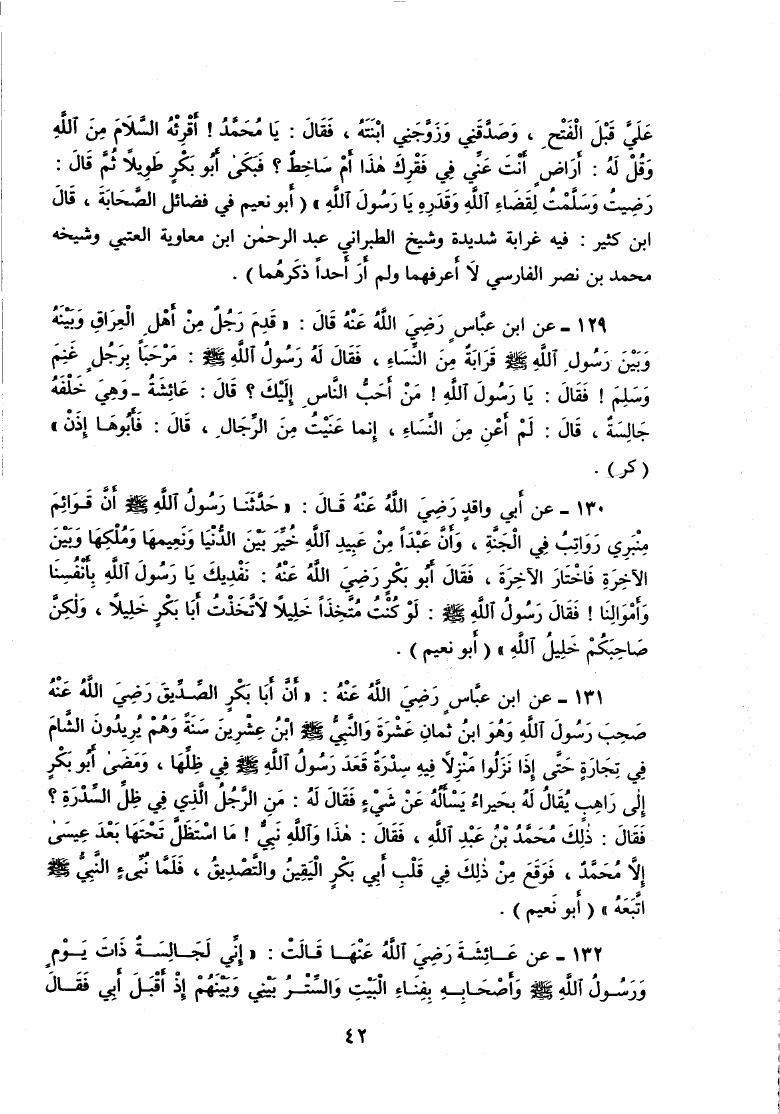 عَلَيَّ قَبْلَ الْفَتْحِ ، وَصَدَّقَنِي وَزَوَّجَنِي ابْنَتَهُ ، فَقَالَ : يَا مُحَمَّدُ ! أَقْرِئْهُ السَّلَامَ مِنَ اللَّهِ
وَقُلْ لَهُ : أَرَاضٍ أَنْتَ عَنِّي فِي فَقْرِكَ هٰذَا أَمْ سَاخِطٌ ؟ فَبَكَىٰ أَبُو بَكْرٍ طَوِيلاً ثُمَّ قَالَ :
رَضِيتُ وَسَلَّمْتُ لِقَضَاءِ اللَّهِ وَقَدَرِهِ يَا رَسُولَ اللَّهِ » ( أبو نعيم في فضائل الصَّحَابَة ، قَالَ
ابن كثير : فيه غرابة شديدة وشيخ الطبراني عبد الرحمٰن ابن معاوية العتبي وشيخه
محمد بن نصر الفارسي لَا أعرفهما ولم أرَ أَحداً ذكَرهُما ) .
١٢٩ - عن ابن عبَّاسٍ رَضِيَ اللَّهُ عَنْهُ قَالَ : « قَدِمَ رَجُلٌ مِنْ أَهْلِ الْعِرَاقِ وَبَيْنَهُ
وَبَيْنَ رَسُولِ اللَّهِ ﷺ قَرَابَةٌ مِنَ النِّسَاءِ ، فَقَالَ لَهُ رَسُولُ اللَّهِ ﷺ : مَرْحَباً بِرَجُلٍ غَنِمَ
وَسَلِمَ ! فَقَالَ : يَا رَسُولَ اللَّهِ ! مَنْ أَحَبُّ النَّاسِ إِلَيْكَ ؟ قَالَ : عَائِشَةُ - وَهِيَ خَلْفَهُ
جَالِسَةٌ ، قَالَ : لَمْ أَعْنِ مِنَ النِّسَاءِ ، إنما عَنَيْتُ مِنَ الرِّجَالِ ، قَالَ : فَأَبُوهَا إِذَنْ »
( كر ) .
١٣٠ - عن أبي واقدٍ رَضِيَ اللَّهُ عَنْهُ قَالَ : « حَدَّثَنَا رَسُولُ اللَّهِ ﷺ أَنَّ قَوَائِمَ
مِنْبَرِي رَوَاتِبُ فِي الْجَنَّةِ ، وَأَنَّ عَبْدَاً مِنْ عَبِيدِ اللَّهِ خُيِّرَ بَيْنَ الدُّنْيَا وَنَعِيمِهَا وَمُلْكِهَا وَبَيْنَ
الآخِرَةِ فَاخْتَارَ الآخِرَةَ ، فَقَالَ أَبُو بَكْرٍ رَضِيَ اللَّهُ عَنْهُ : نَفْدِيكَ يَا رَسُولَ اللَّهِ بِأَنْفُسِنَا
وَأَمْوَالِنَا ! فَقَالَ رَسُولُ اللَّهِ ﷺ : لَوْ كُنْتُ مُتَّخِذَاً خَلِيلاً لَاتَّخَذْتُ أَبَا بَكْرٍ خَلِيلاً ، وَلٰكِنَّ
صَاحِبَكُمْ خَلِيلُ اللَّهِ » ( أبو نعيم ) .
١٣١ - عن ابن عبَّاسٍ رَضِيَ اللَّهُ عَنْهُ : « أَنَّ أَبَا بَكْرٍ الصِّدِّيقَ رَضِيَ اللَّهُ عَنْهُ
صَحِبَ رَسُولَ اللَّهِ وَهُوَ ابنُ ثمانِ عَشْرَةَ وَالنَّبِيُّ ﷺ ابْنُ عِشْرِينَ سَنَةً وَهُمْ يُرِيدُونَ الشَّامَ
فِي تِجَارَةٍ حَتَّى إِذَا نَزَلُوا مَنْزِلاً فِيهِ سِدْرَةٌ قَعَدَ رَسُولُ اللَّهِ ﷺ فِي ظِلِّهَا ، وَمَضَىٰ أَبُو بَكْرٍ
إِلى رَاهِبٍ يُقَالُ لَهُ بحيراءُ يَسْأَلُهُ عَنْ شَيْءٍ فَقَالَ لَهُ : مَنِ الرَّجُلُ الَّذِي فِي ظِلِّ السِّدْرَةِ ؟
فَقَالَ : ذٰلِكَ مُحَمَّدُ بْنُ عَبْدِ اللَّهِ ، فَقَالَ : هٰذَا وَاللَّهِ نَبِيٌّ ! مَا اسْتَظَلَّ تَحْتَهَا بَعْدَ عِيسَىٰ
إِلاَّ مُحَمَّدٌ ، فَوَقَعَ مِنْ ذٰلِكَ فِي قَلْبِ أَبِي بَكْرٍ الْيَقِينُ وَالتَّصْدِيقُ ، فَلَمَّا نُبِّىءَ النَّبِيُّ ﷺ
اتَّبَعَهُ » ( أبو نعيم ) .
١٣٢ - عن عَائِشَةَ رَضِيَ اللَّهُ عَنْهَا قَالَتْ : « إِنِّي لَجَالِسَةٌ ذَاتَ يَوْمٍ
وَرَسُولُ اللَّهِ ﷺ وَأَصْحَابِهِ بِفِنَاءِ الْبَيْتِ وَالسِّتْرُ بَيْنِي وَبَيْنَهُمْ إِذْ أَقْبَلَ أَبِي فَقَالَ
٤٢